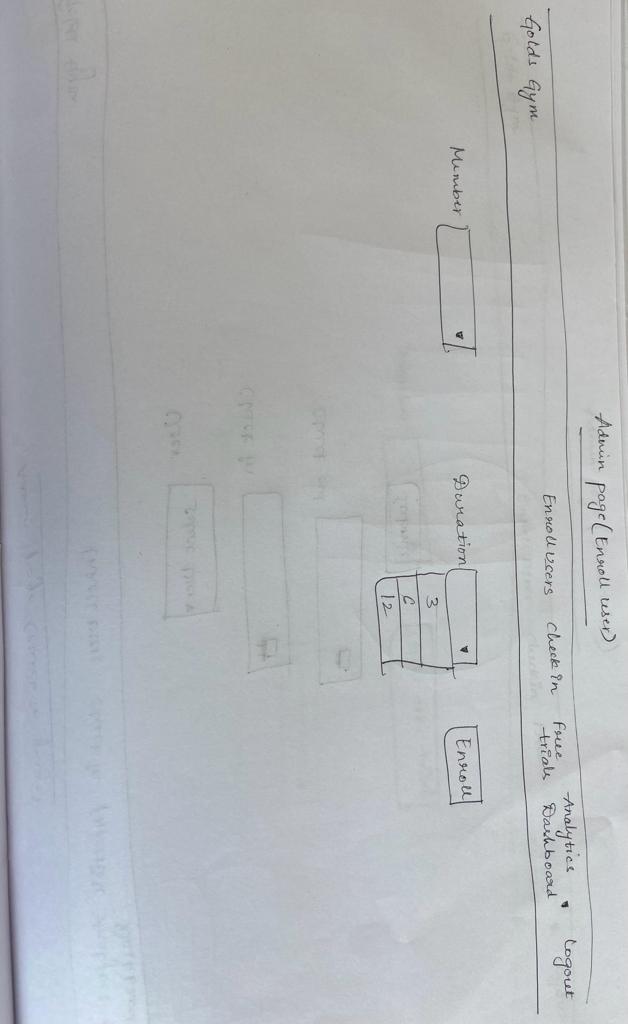 Admin page (Enroll user)
Golds Gym Enroll users Check in Free trials Analytics Dashboard Logout
Member Duration Enroll
3
6
12